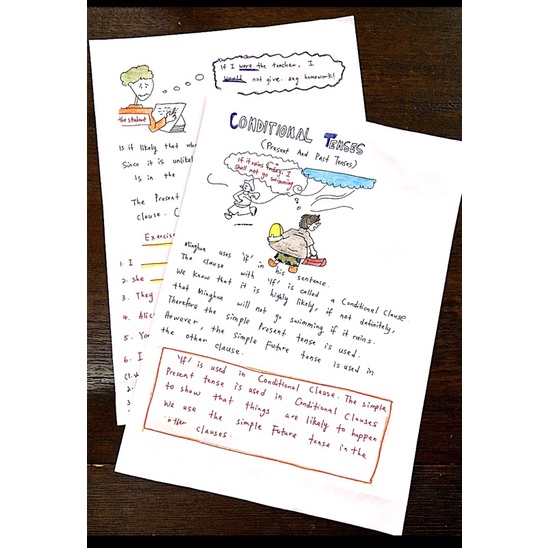 If I were the teacher, I
would not give any homework!
the student
Is if likely that
Since it is unlikel
is in the
The Present
clause. (
Exercise
1. I
2. She
3. They
4. Alic
5. You
6. I
CONDITIONAL TENSES
(Present And Past Tenses)
If it rains today, I
shall not go swimming
?
Minghua uses 'if' in his sentence.
The clause with 'if' is called a Conditional Clause.
We know that it is highly likely, if not definitely,
that Minghua will not go swimming if it rains.
Therefore the simple Present tense is used.
However, the simple Future tense is used in
the other clause.
'If' is used in Conditional Clause. The simple
Present tense is used in Conditional Clauses
to show that things are likely to happen
We use the simple Future tense in the
other clauses.